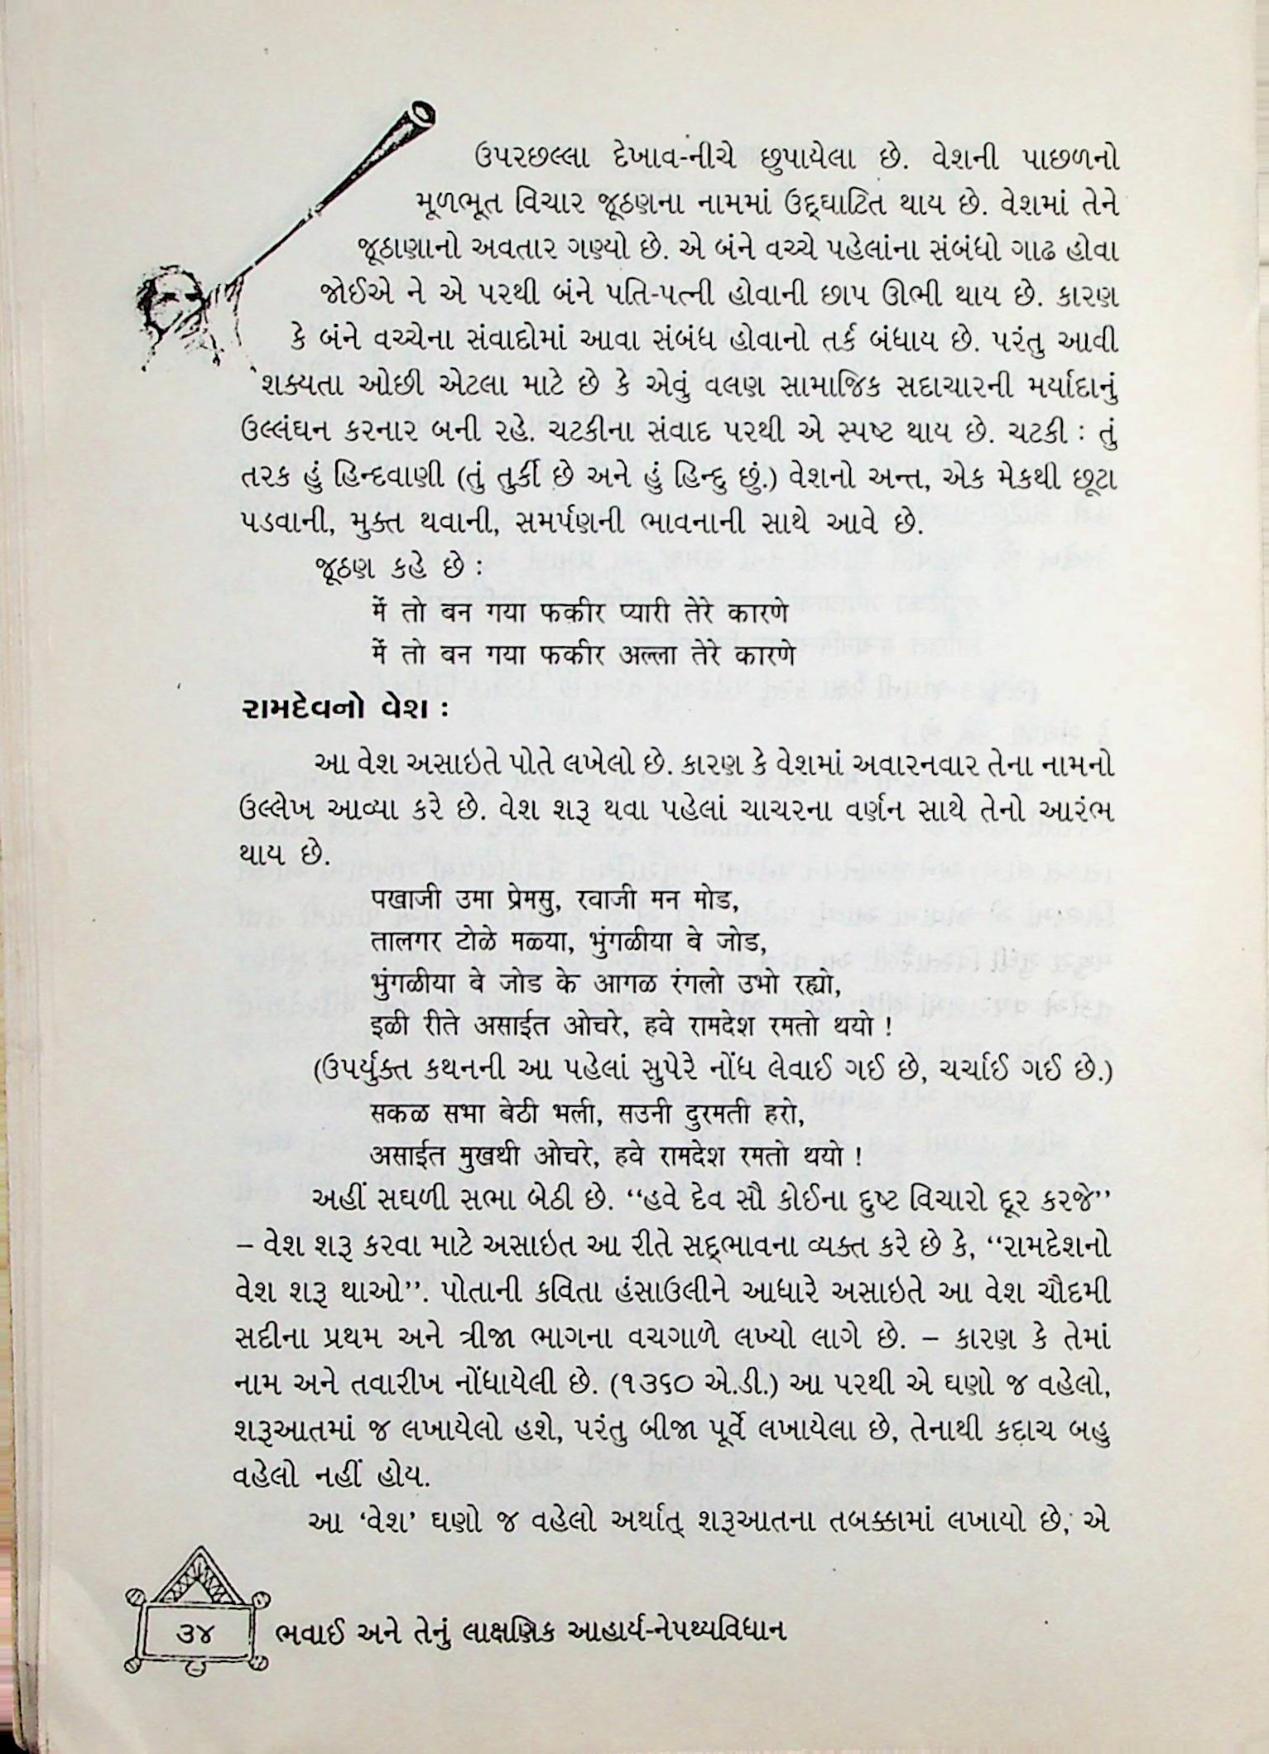 ઉપરછલ્લા દેખાવ-નીચે છુપાયેલા છે. વેશની પાછળનો
મૂળભૂત વિચાર જૂઠણના નામમાં ઉદ્ઘાટિત થાય છે. વેશમાં તેને
જૂઠાણાનો અવતાર ગણ્યો છે. એ બંને વચ્ચે પહેલાંના સંબંધો ગાઢ હોવા
જોઈએ ને એ પરથી બંને પતિ-પત્ની હોવાની છાપ ઊભી થાય છે. કારણ
કે બંને વચ્ચેના સંવાદોમાં આવા સંબંધ હોવાનો તર્ક બંધાય છે. પરંતુ આવી
શક્યતા ઓછી એટલા માટે છે કે એવું વલણ સામાજિક સદાચારની મર્યાદાનું
ઉલ્લંઘન કરનાર બની રહે. ચટકીના સંવાદ પરથી એ સ્પષ્ટ થાય છે. ચટકી : તું
તરક હું હિન્દવાણી (તું તુર્કી છે અને હું હિન્દુ છું.) વેશનો અન્ત, એક મેકથી છૂટા
પડવાની, મુક્ત થવાની, સમર્પણની ભાવનાની સાથે આવે છે.
જૂઠણ કહે છે :
में तो बन गया फकीर प्यारी तेरे कारणे
में तो बन गया फकीर अल्ला तेरे कारणे
રામદેવનો વેશ :
આ વેશ અસાઇતે પોતે લખેલો છે. કારણ કે વેશમાં અવારનવાર તેના નામનો
ઉલ્લેખ આવ્યા કરે છે. વેશ શરૂ થવા પહેલાં ચાચરના વર્ણન સાથે તેનો આરંભ
થાય છે.
પખાજી ઉમા પ્રેમસુ, રવાજી મન મોડ,
તાલગર ટોળે મળ્યા, ભુંગળીયા બે જોડ,
ભુંગળીયા બે જોડ કે આગળ રંગલો ઉભો રહ્યો,
ઇળી રીતે અસાઈત ઓચરે, હવે રામદેશ રમતો થયો !
(ઉપર્યુક્ત કથનની આ પહેલાં સુપેરે નોંધ લેવાઈ ગઈ છે, ચર્ચાઈ ગઈ છે.)
સકળ સભા બેઠી ભલી, સઉની દુરમતી હરો,
અસાઈત મુખથી ઓચરે, હવે રામદેશ રમતો થયો !
અહીં સઘળી સભા બેઠી છે. “હવે દેવ સૌ કોઈના દુષ્ટ વિચારો દૂર કરજે”
– વેશ શરૂ કરવા માટે અસાઇત આ રીતે સદ્ભાવના વ્યક્ત કરે છે કે, “રામદેશનો
વેશ શરૂ થાઓ”. પોતાની કવિતા હંસાઉલીને આધારે અસાઇતે આ વેશ ચૌદમી
સદીના પ્રથમ અને ત્રીજા ભાગના વચગાળે લખ્યો લાગે છે. – કારણ કે તેમાં
નામ અને તવારીખ નોંધાયેલી છે. (૧૩૬૦ એ.ડી.) આ પરથી એ ઘણો જ વહેલો,
શરૂઆતમાં જ લખાયેલો હશે, પરંતુ બીજા પૂર્વે લખાયેલા છે, તેનાથી કદાચ બહુ
વહેલો નહીં હોય.
આ ‘વેશ’ ઘણો જ વહેલો અર્થાત્ શરૂઆતના તબક્કામાં લખાયો છે, એ
૩૪ ભવાઈ અને તેનું લાક્ષણિક આહાર્ય-નેપથ્યવિધાન